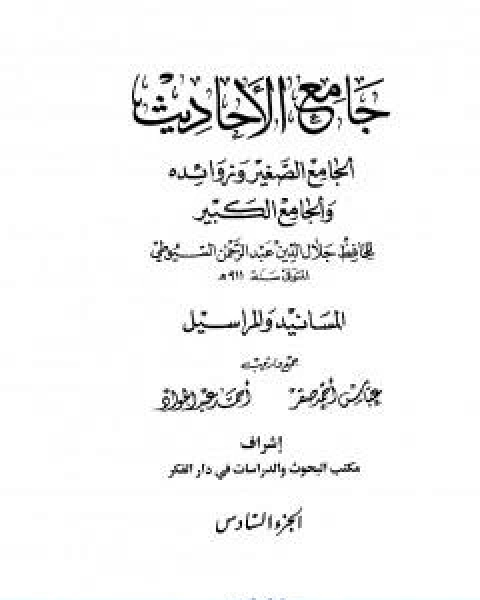 جَامِع الأَحَادِيث
الجَامِع الصَّغِير وَزَوَائِده
وَالجَامِع الكَبِير
لِلحَافِظ جَلَال الدِّين عَبد الرَّحمٰن السّيُوطِي
المتوفى سَنَة ٩١١ هـ
المسَانيد وَالمراسِيل
جمع وترتيب
عباس أحمد صقر أحمد عبد الجواد
إشراف
مكتب البحوث والدراسات في دار الفكر
الجزء السَّادس